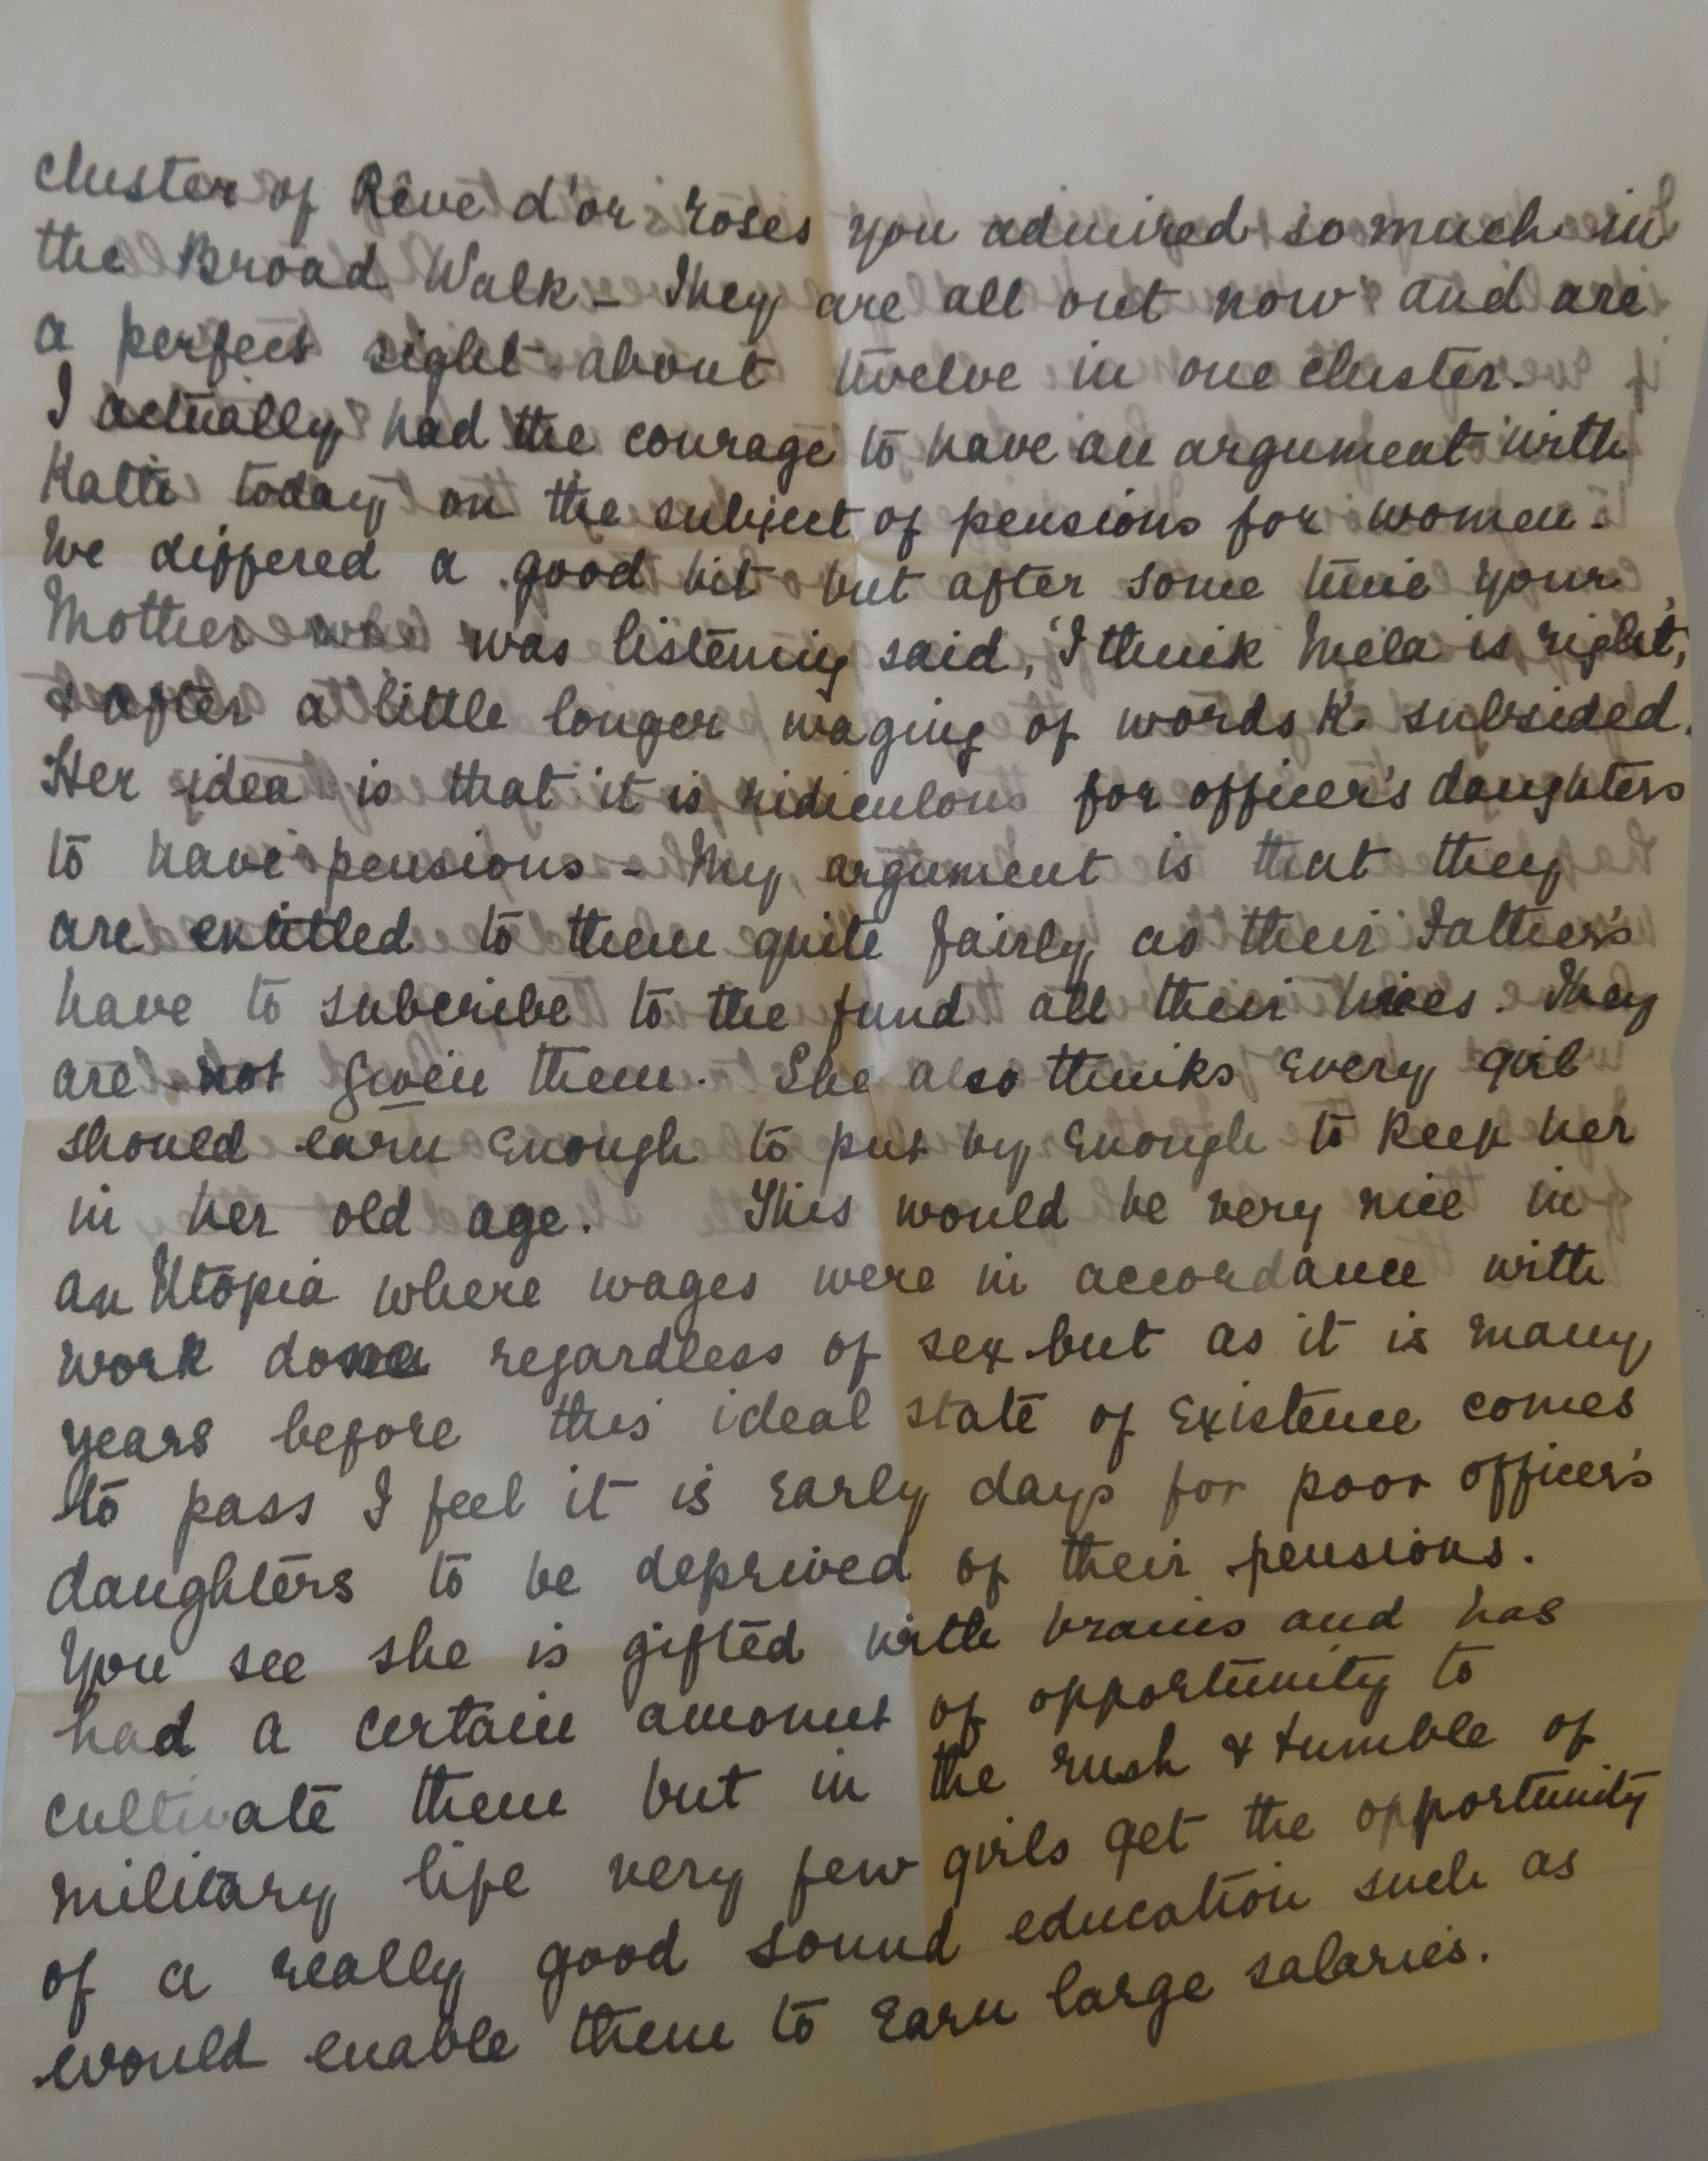 cluster of Rêve d'or roses you admired so much in
the Broad Walk – They are all out now and are
a perfect sight about twelve in one cluster.
I actually had the courage to have an argument with
Katie today on the subject of pensions for women.
We differed a good bit but after some time your
Mother who was listening said, 'I think Mela is right,'
& after a little longer waging of words K. subsided.
Her idea is that it is ridiculous for officer's daughters
to have pensions – My argument is that they
are entitled to them quite fairly as their Father's
have to subcribe to the fund all their lives. They
are not given them. She also thinks every girl
should earn enough to put by enough to keep her
in her old age. This would be very nice in
an Utopia where wages were in accordance with
work done regardless of sex but as it is many
years before this ideal state of existence comes
to pass I feel it is early days for poor officer's
daughters to be deprived of their pensions.
You see she is gifted with brains and has
had a certain amount of opportunity to
cultivate them but in the rush & tumble of
military life very few girls get the opportunity
of a really good sound education such as
would enable them to earn large salaries.